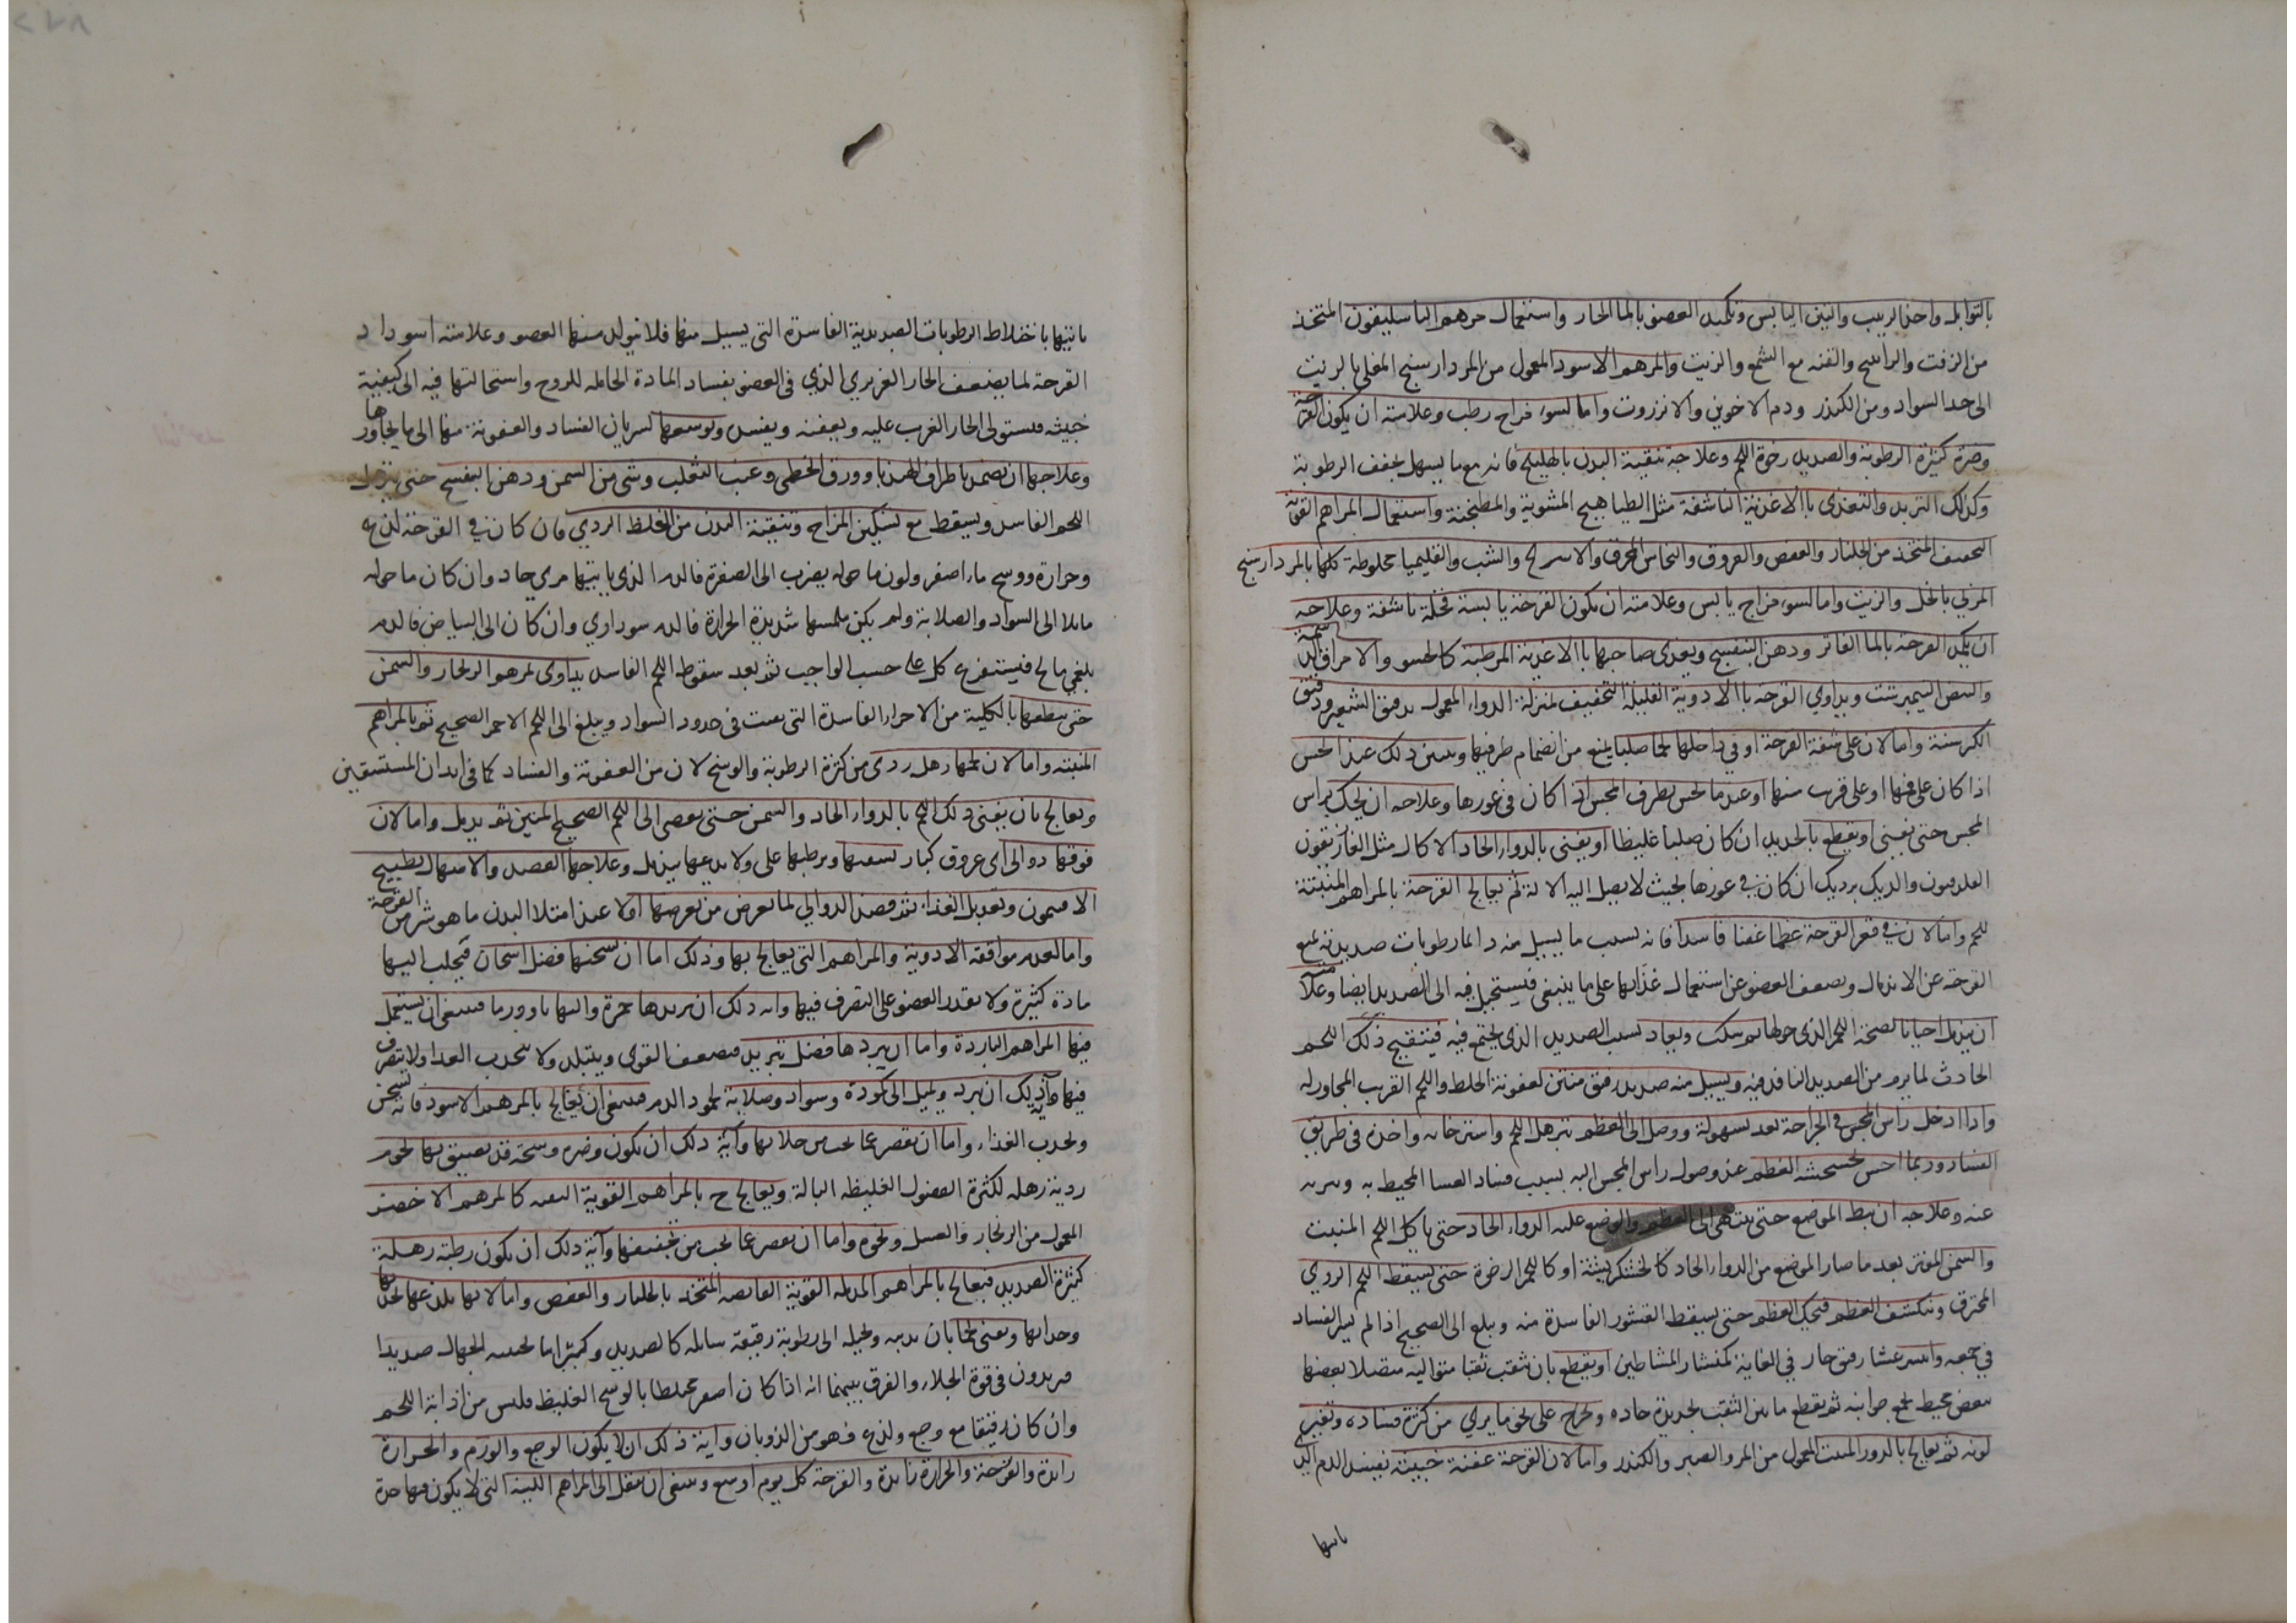 بالتوابل واخذ الزبيب والتين اليابس وتكميد العضو بالماء الحار واستعمال مرهم الباسليقون المتخذ
من الزفت والراتينج والقنه مع الشمع والزيت والمرهم الاسود المعمول من المردارسنج المغلي بالزيت
الى حد السواد ومن الكندر ودم الاخوين والانزروت واما لسوء مزاج رطب وعلامته ان يكون القرحة
وضرة كثيرة الرطوبة والصديد رخوة اللحم وعلاجه تنقية البدن بالهليلج فانه مع ما يسهل يجفف الرطوبة
وكذلك التربد والتغذي باالاغذية الناشفة مثل الطياهيج المشوية والمطجنة واستعمال المراهم القوية
التجفيف المتخذ من الجلنار والعفص والعروق والنحاس المحرق والاسرنج والشب والقليميا مخلوطة كلها بالمردارسنج
المربي بالخل والزيت واما لسوء مزاج يابس وعلامته ان يكون القرحة يابسة قحلة ناشفة وعلاجه
ان يكمد القرحة بالماء الفاتر ودهن البنفسج ويغذى صاحبها باالاغذية المرطبة كالحسو والامراق الدسمة
والبيض النيمبرشت ويداوي القرحة باالادوية القليلة التجفيف بمنزلة الدواء المعمول بدقيق الشعير ودقيق
الكرسنة واما لان على شفة القرحة او في داخلها لحما صلبا يمنع من انضمام طرفيها وتبين ذلك عند الحس
اذا كان على فمها او على قرب منها او عند ما يحس بطرف المجس اذا كان في غورها وعلاجه ان يحك براس
المجس حتى يفنى او يقطع بالحديد ان كان صلبا غليظا او يفنى بالدواء الحاد الاكال مثل الفلدفيون
والديك برديك ان كان في غورها بحيث لا يصل اليه الالة ثم يعالج القرحة بالمراهم المنبتة
للحم واما لان في قعر القرحة عظما عفنا فاسدا فانه بسبب ما يسيل منه دائما رطوبات صديدية يمنع
القرحة عن الاندمال ويضعف العضو عن استعمال غذائها على ما ينبغي فيستحيل فيه الى الصديد ايضا وعلامته
ان يندمل احيانا لصحة اللحم الذي حولها ثم ينكث ويعاد لسبب الصديد الذي يجتمع فيه فيتقيح ذلك اللحم
الحادث لما يرد من الصديد النافذ فيه ويسيل منه صديد رقيق منتن لعفونة الخلط واللحم القريب المجاور له
واذا ادخل راس المجس في الجراحة نفد بسهولة ووصل الى العظم لترهل اللحم واسترخائه واخذه في طريق
الفساد وربما احس بخشخشة العظم عند وصول راس المجس اليه بسبب فساد الغشا المحيط به وتبريه
عنه وعلاجه ان يبط الموضع حتى ينتهى الى العظم والوضع عليه الدواء الحاد حتى ياكل اللحم المنبت
والسمن المفتر بعد ما صار الموضع من الدواء الحاد كالخشكريشة او كاللحم الرخوة حتى يسقط اللحم الردي
المحترق وينكشف العظم فيحك العظم حتى يسقط القشور الفاسدة منه ويبلغ الى الصحيح اذا لم يسر الفساد
في جميعه وينشر بمنشار رقيق حار في الغاية كمنشار المشاطين او يقطع بان يثقب ثقبا متوالية متصلا بعضها
ببعض محيط بجميع جوانبه ثم يقطع ما بين الثقب بحديدة حاده ويخرج على نحو ما يرى من كثرة فساده وتغير
لونه ثم يعالج بالذرور المنبت المعمول من المر والصبر والكندر واما لان القرحة عفنة خبيثة يفسد الدم الذي
ياتيها
ياتيها باختلاط الرطوبات الصديدية الفاسدة التي يسيل منها فلا يتولد منها العضو وعلامته اسوداد
القرحة لما يضعف الحار الغريزي الذي في العضو بفساد المادة الحامله للروح واستحالتها فيه الى كيفية
خبيثه فيستولى الحار الغريب عليه ويعفنه ويفسده وتوسعها لسريان الفساد والعفونة منها الى ما يجاورها
وعلاجها ان تضمد باطراف الهندبا وورق الخطمي وعنب الثعلب وشي من السمن ودهن البنفسج حتى يترهل
اللحم الفاسد ويسقط مع تسكين المزاج وتنقية البدن من الخلط الردي فان كان في القرحة لذع
وحرارة ووسخ ماء اصفر ولون ما حوله يضرب الى الصفرة فالدم الذي ياتيها مري حاد وان كان ما حوله
مايلا الى السواد والصلابة ولم يكن ملمسها شديدة الحرارة فالدم سوداوي وان كان الى البياض فالدم
بلغمي مالح فيستفرغ كل على حسب الواجب ثم بعد سقوط اللحم الفاسد يداوى بمرهم الزنجار والسمن
حتى ينظفها بالكلية من الاجزاء الفاسدة التي بقيت في حدود السواد ويبلغ الى اللحم الاحمر الصحيح ثم بالمراهم
المنبته واما لان لحمها رهل ردى من كثرة الرطوبة والوسخ لان من العفونة والفساد كما في ابدان المستسقين
ويعالج بان يفنى ذلك اللحم بالدواء الحاد والسمن حتى يفضى الى اللحم الصحيح المتين ثم يدمل واما لان
فوقها دوالى اى عروق كبار تسقيها وترطبها على ولا يدعها يندمل وعلاجها الفصد والاسهال بطبيخ
الافتيمون وتعديل الغذاء ثم فصد الدوالي لما يعرض من تعرضها اولا عند امتلا البدن ما هو شر من القرحة
واما لعدم موافقه الادوية والمراهم التي يعالج بها وذلك اما ان تسخنها فضل اسخان فيجلب اليها
مادة كثيرة ولا يقدر العضو على التصرف فيها وآية ذلك ان يزيدها حمرة والتهابا وورما فينبغى ان يستعمل
فيها المراهم الباردة واما ان يبردها فضل تبريد فيضعف القوى ويتبلد ولا ينجذب الغذا ولا يتصرف
فيها وآية ذلك ان يبرد ويميل الى كمودة وسواد وصلابة لجمود الدم فينبغى ان يعالج بالمرهم الاسود فانه يسخن
ويجذب الغذاء واما ان يقصر عما يجب من جلائها وآية ذلك ان يكون وضره وسخه قد تضيق بها لحوم
ردية رهله لكثرة الفضول الغليظه البالة ويعالج ح بالمراهم القوية المنقيه كالمرهم الاخضر
المعمول من الزنجار والعسل ونحوه واما ان يقصر عما يجب من تجفيفها وآية ذلك ان يكون رطبة رهلة
كثيرة الصديد فيعالج بالمراهم المدمله القوية القابضه المتخذ بالجلنار والعفص واما لانها يلذعها بحدتها
وجلائها ويفنى لحما بان يذيبه ويحيله الى رطوبة رقيقة سائله كالصديد وكثيرا ما يحسبه الجهال صديدا
فيزيدون في قوة الجلاء والفرق بينهما انه اذا كان اصفر مختلطا بالوسخ الغليظ فليس من اذابة اللحم
وان كان رقيقا مع وجع ولذع فهو من الذوبان واية ذلك ان لا يكون الوجع والورم والحرارة
زائدة والقرحة والحرارة زائدة والقرحة كل يوم اوسع وينبغى ان ينتقل الى المراهم اللينه التي لا يكون فيها حدة